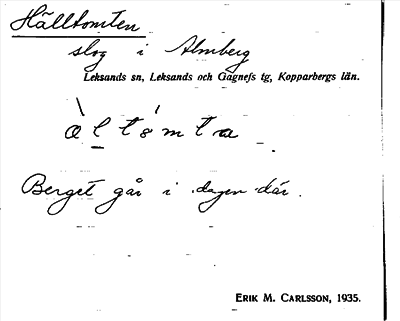 Hälltomten
slog i Almberg
Leksands sn, Leksands och Gagnefs tg, Kopparbergs län.
æ̀ltómta
Berget går i dagen där.
ERIK M. CARLSSON, 1935.